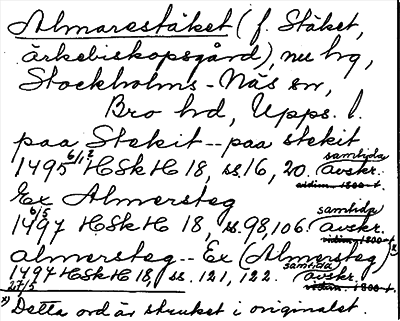 Almarestäket (f. Stäket,
ärkebiskopsgård), nu hg,
Stockholms-Näs sn,
Bro hd, Upps. l.
paa Stekit -- paa stekit
1495 6/12 HSkH 18, ss. 16, 20. samtida avskr.
vidim. 1800-t.
Ex Almersteg
1497 6/5 HSkH 18, ss. 98, 106. samtida avskr.
vidim. 1800-t.
almersteg -- Ex (Almersteg)x)
1497 27/5 HSkH 18, ss. 121, 122. samtida avskr.
vidim. 1800-t.
x) Detta ord är struket i originalet.